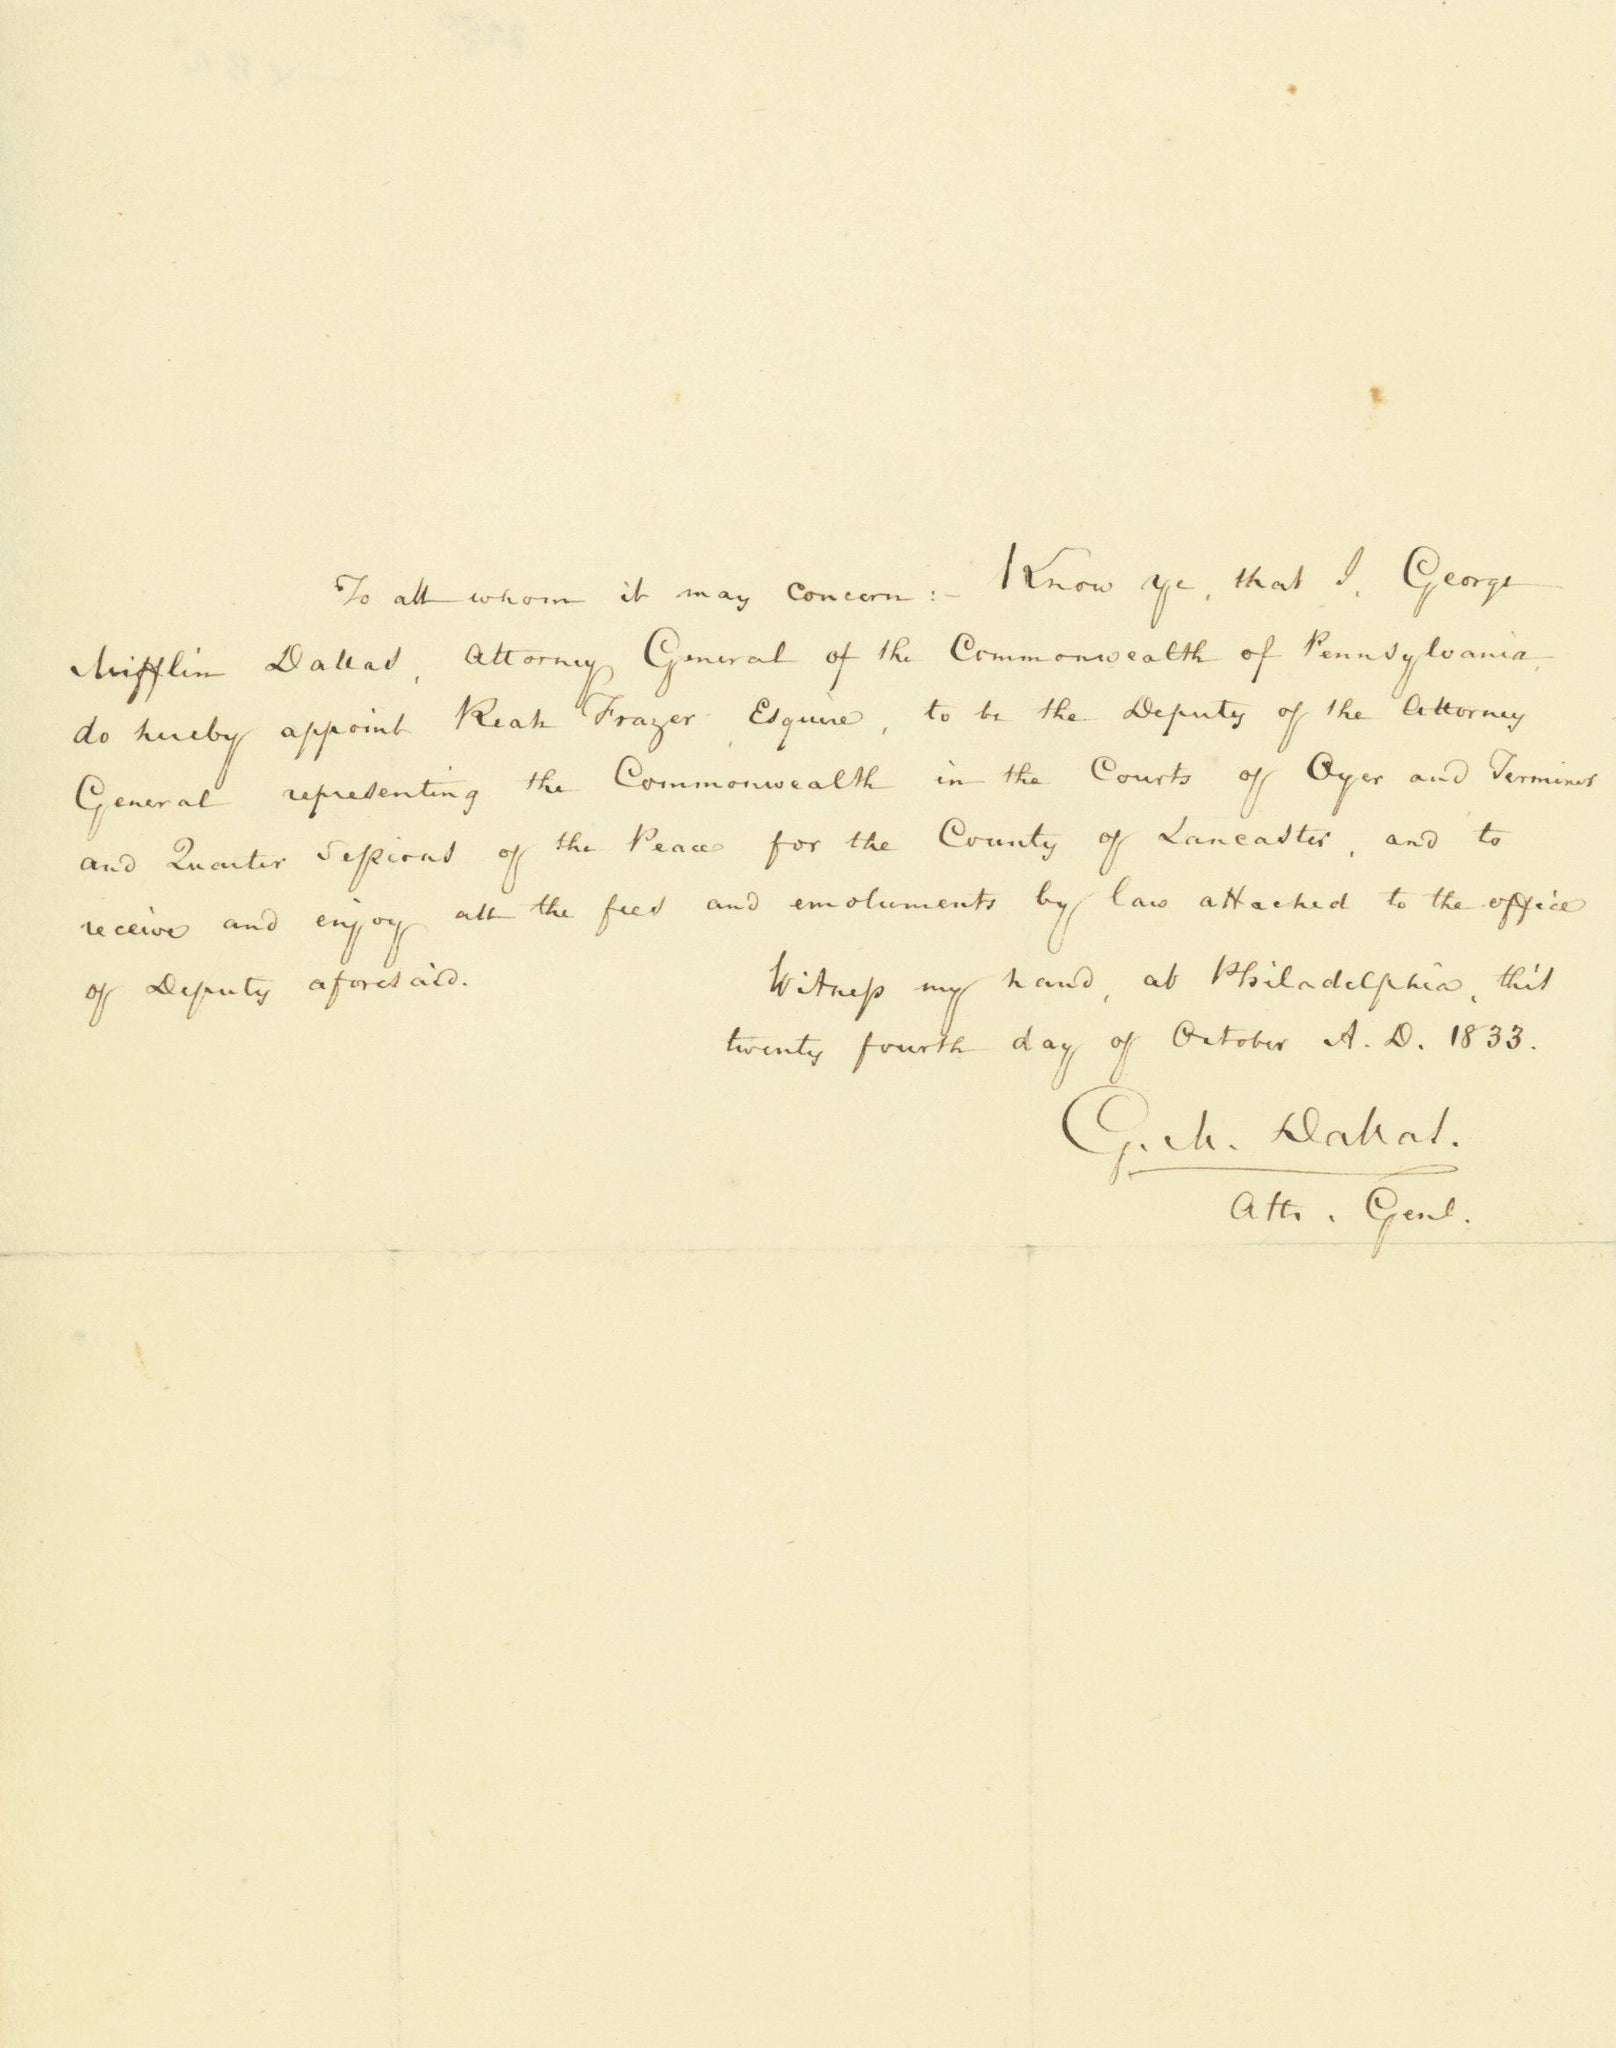 To all whom it may concern:- Know ye, that I, George
Mifflin Dallas, Attorney General of the Commonwealth of Pennsylvania,
do hereby appoint Reah Frazer, Esquire, to be the Deputy of the Attorney
General representing the Commonwealth in the Courts of Oyer and Terminer
and Quarter Sessions of the Peace for the County of Lancaster, and to
receive and enjoy all the fees and emoluments by law attached to the office
of Deputy aforesaid. Witness my hand, at Philadelphia, this
twenty fourth day of October A. D. 1833.
G. M. Dallas.
Atty. Genl.